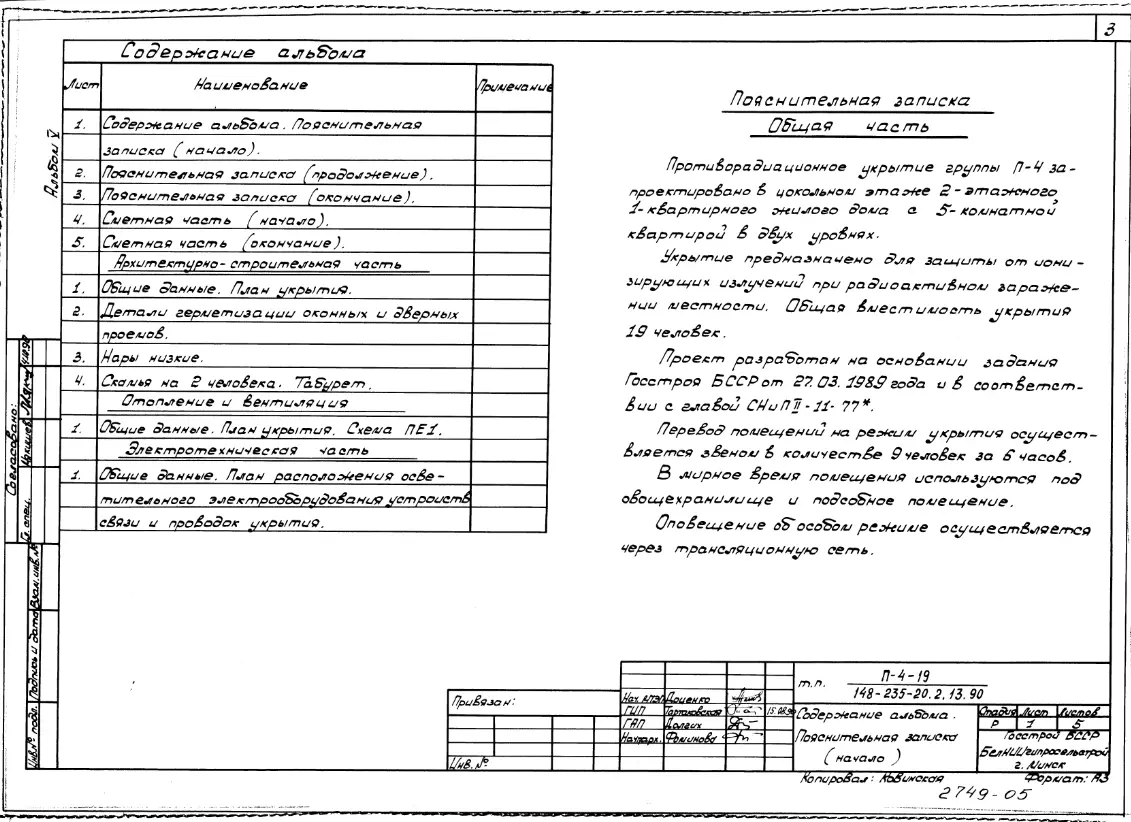 3
Альбом V
Содержание альбома
Лист Наименование Примечание
1. Содержание альбома. Пояснительная
записка (начало).
2. Пояснительная записка (продолжение).
3. Пояснительная записка (окончание).
4. Сметная часть (начало).
5. Сметная часть (окончание).
Архитектурно-строительная часть
1. Общие данные. План укрытия.
2. Детали герметизации оконных и дверных
проемов.
3. Нары низкие.
4. Скамья на 2 человека. Табурет.
Отопление и вентиляция
1. Общие данные. План укрытия. Схема ПЕ1.
Электротехническая часть
1. Общие данные. План расположения осве-
тительного электрооборудования устройств
связи и проводок укрытия.
Пояснительная записка
Общая часть
Противорадиационное укрытие группы П-4 за-
проектировано в цокольном этаже 2-этажного
1-квартирного жилого дома с 5-комнатной
квартирой в двух уровнях.
Укрытие предназначено для защиты от иони-
зирующих излучений при радиоактивном зараже-
нии местности. Общая вместимость укрытия
19 человек.
Проект разработан на основании задания
Госстроя БССР от 27.03.1989 года и в соответст-
вии с главой СНиП II-11-77*.
Перевод помещений на режим укрытия осущест-
вляется звеном в количестве 9 человек за 6 часов.
В мирное время помещения используются под
овощехранилище и подсобное помещение.
Оповещение об особом режиме осуществляется
через трансляционную сеть.
Согласовано:
Гл. спец.
Взам. инв. №
Подпись и дата
Инв.№ подл.
Привязан:
Инв. №
Нач. МТЭП Доценко
ГИП Тартаковская 15.08.90
ГАП Долгих
Нач. парк. Фоминова
т.п. П-4-19
148-235-20.2.13.90
Содержание альбома.
Пояснительная записка
(начало)
Стадия Лист Листов
Р 1 5
Госстрой БССР
БелНИИгипросельстрой
г. Минск
Копировал: Ковинская Формат: А3
2749-05